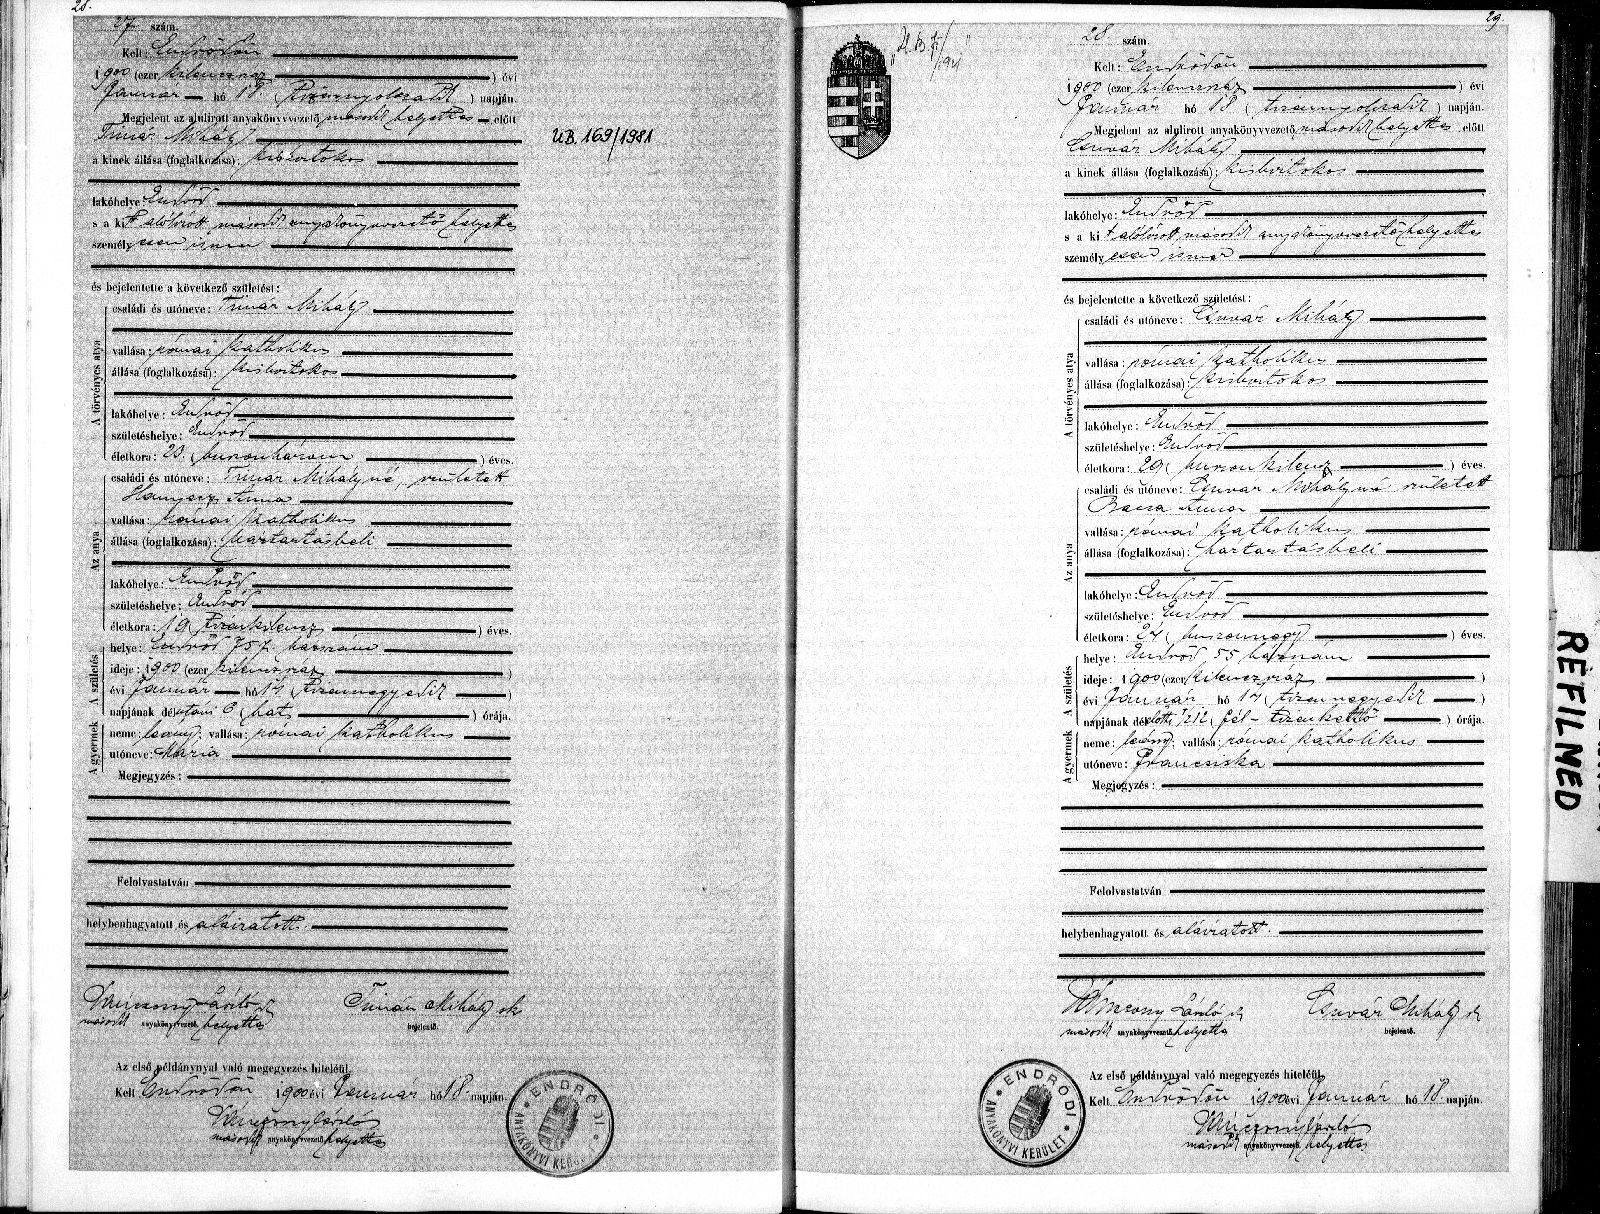 28.
27 szám.
Kelt: Endrődön
1900 (ezer kilenczszáz ) évi
Január hó 18. (tizennyolczadik ) napján.
Megjelent az alulirott anyakönyvvezető második helyettes előtt
Timár Mihály
a kinek állása (foglalkozása): kisbirtokos
lakóhelye: Endrőd
s a kit alólirott második anyakönyvvezető helyettes
személyesen ismer
és bejelentette a következő születést:
A törvényes atya
családi és utóneve: Timár Mihály
vallása: római katholikus
állása (foglalkozása): kisbirtokos
lakóhelye: Endrőd
születéshelye: Endrőd
életkora: 23 (huszonhárom ) éves.
Az anya
családi és utóneve: Timár Mihályné, született
Anna
vallása: római katholikus
állása (foglalkozása): háztartásbeli
lakóhelye: Endrőd
születéshelye: Endrőd
életkora: 19 (tizenkilencz ) éves.
A születés
helye: Endrőd 757 házszám
ideje: 1900 (ezer kilenczszáz )
évi Január hó 14 (tizennegyedik )
napjának délutáni 6 (hat ) órája.
A gyermek
neme: leány; vallása: római katholikus
utóneve: Mária
Megjegyzés:
Felolvastatván
helybenhagyatott és aláiratott.
László
második anyakönyvvezető helyettes
Timár Mihály sk
bejelentő.
Az első példánynyal való megegyezés hiteléül.
Kelt Endrődön 1900 évi Január hó 18 napján
László
második anyakönyvvezető helyettes
ENDRŐDI
ANYAKÖNYVI KERÜLET
U.B. 169/1981
29.
28 szám.
Kelt: Endrődön
1900 (ezer kilenczszáz ) évi
Január hó 18 (tizennyolczadik ) napján.
Megjelent az alulirott anyakönyvvezető második helyettes előtt
Csuvár Mihály
a kinek állása (foglalkozása): kisbirtokos
lakóhelye: Endrőd
s a kit alólirott második anyakönyvvezető helyettes
személyesen ismer
és bejelentette a következő születést:
A törvényes atya
családi és utóneve: Csuvár Mihály
vallása: római katholikus
állása (foglalkozása): kisbirtokos
lakóhelye: Endrőd
születéshelye: Endrőd
életkora: 29 (huszonkilencz ) éves.
Az anya
családi és utóneve: Csuvár Mihályné született
Bacsa Anna
vallása: római katholikus
állása (foglalkozása): háztartásbeli
lakóhelye: Endrőd
születéshelye: Endrőd
életkora: 24 (huszonnégy ) éves.
A születés
helye: Endrőd, 55 házszám
ideje: 1900 (ezer kilenczszáz )
évi Január hó 14 (tizennegyedik )
napjának délelőtti 1/2 12 (fél-tizenkettő ) órája.
A gyermek
neme: leány; vallása: római katholikus
utóneve: Francziska
Megjegyzés:
Felolvastatván
helybenhagyatott és aláiratott.
László sk
második anyakönyvvezető helyettes
Csuvár Mihály sk
bejelentő.
Az első példánynyal való megegyezés hiteléül.
Kelt Endrődön 1900 évi Január hó 18 napján.
László
második anyakönyvvezető helyettes
ENDRŐDI
ANYAKÖNYVI KERÜLET
REFILMED